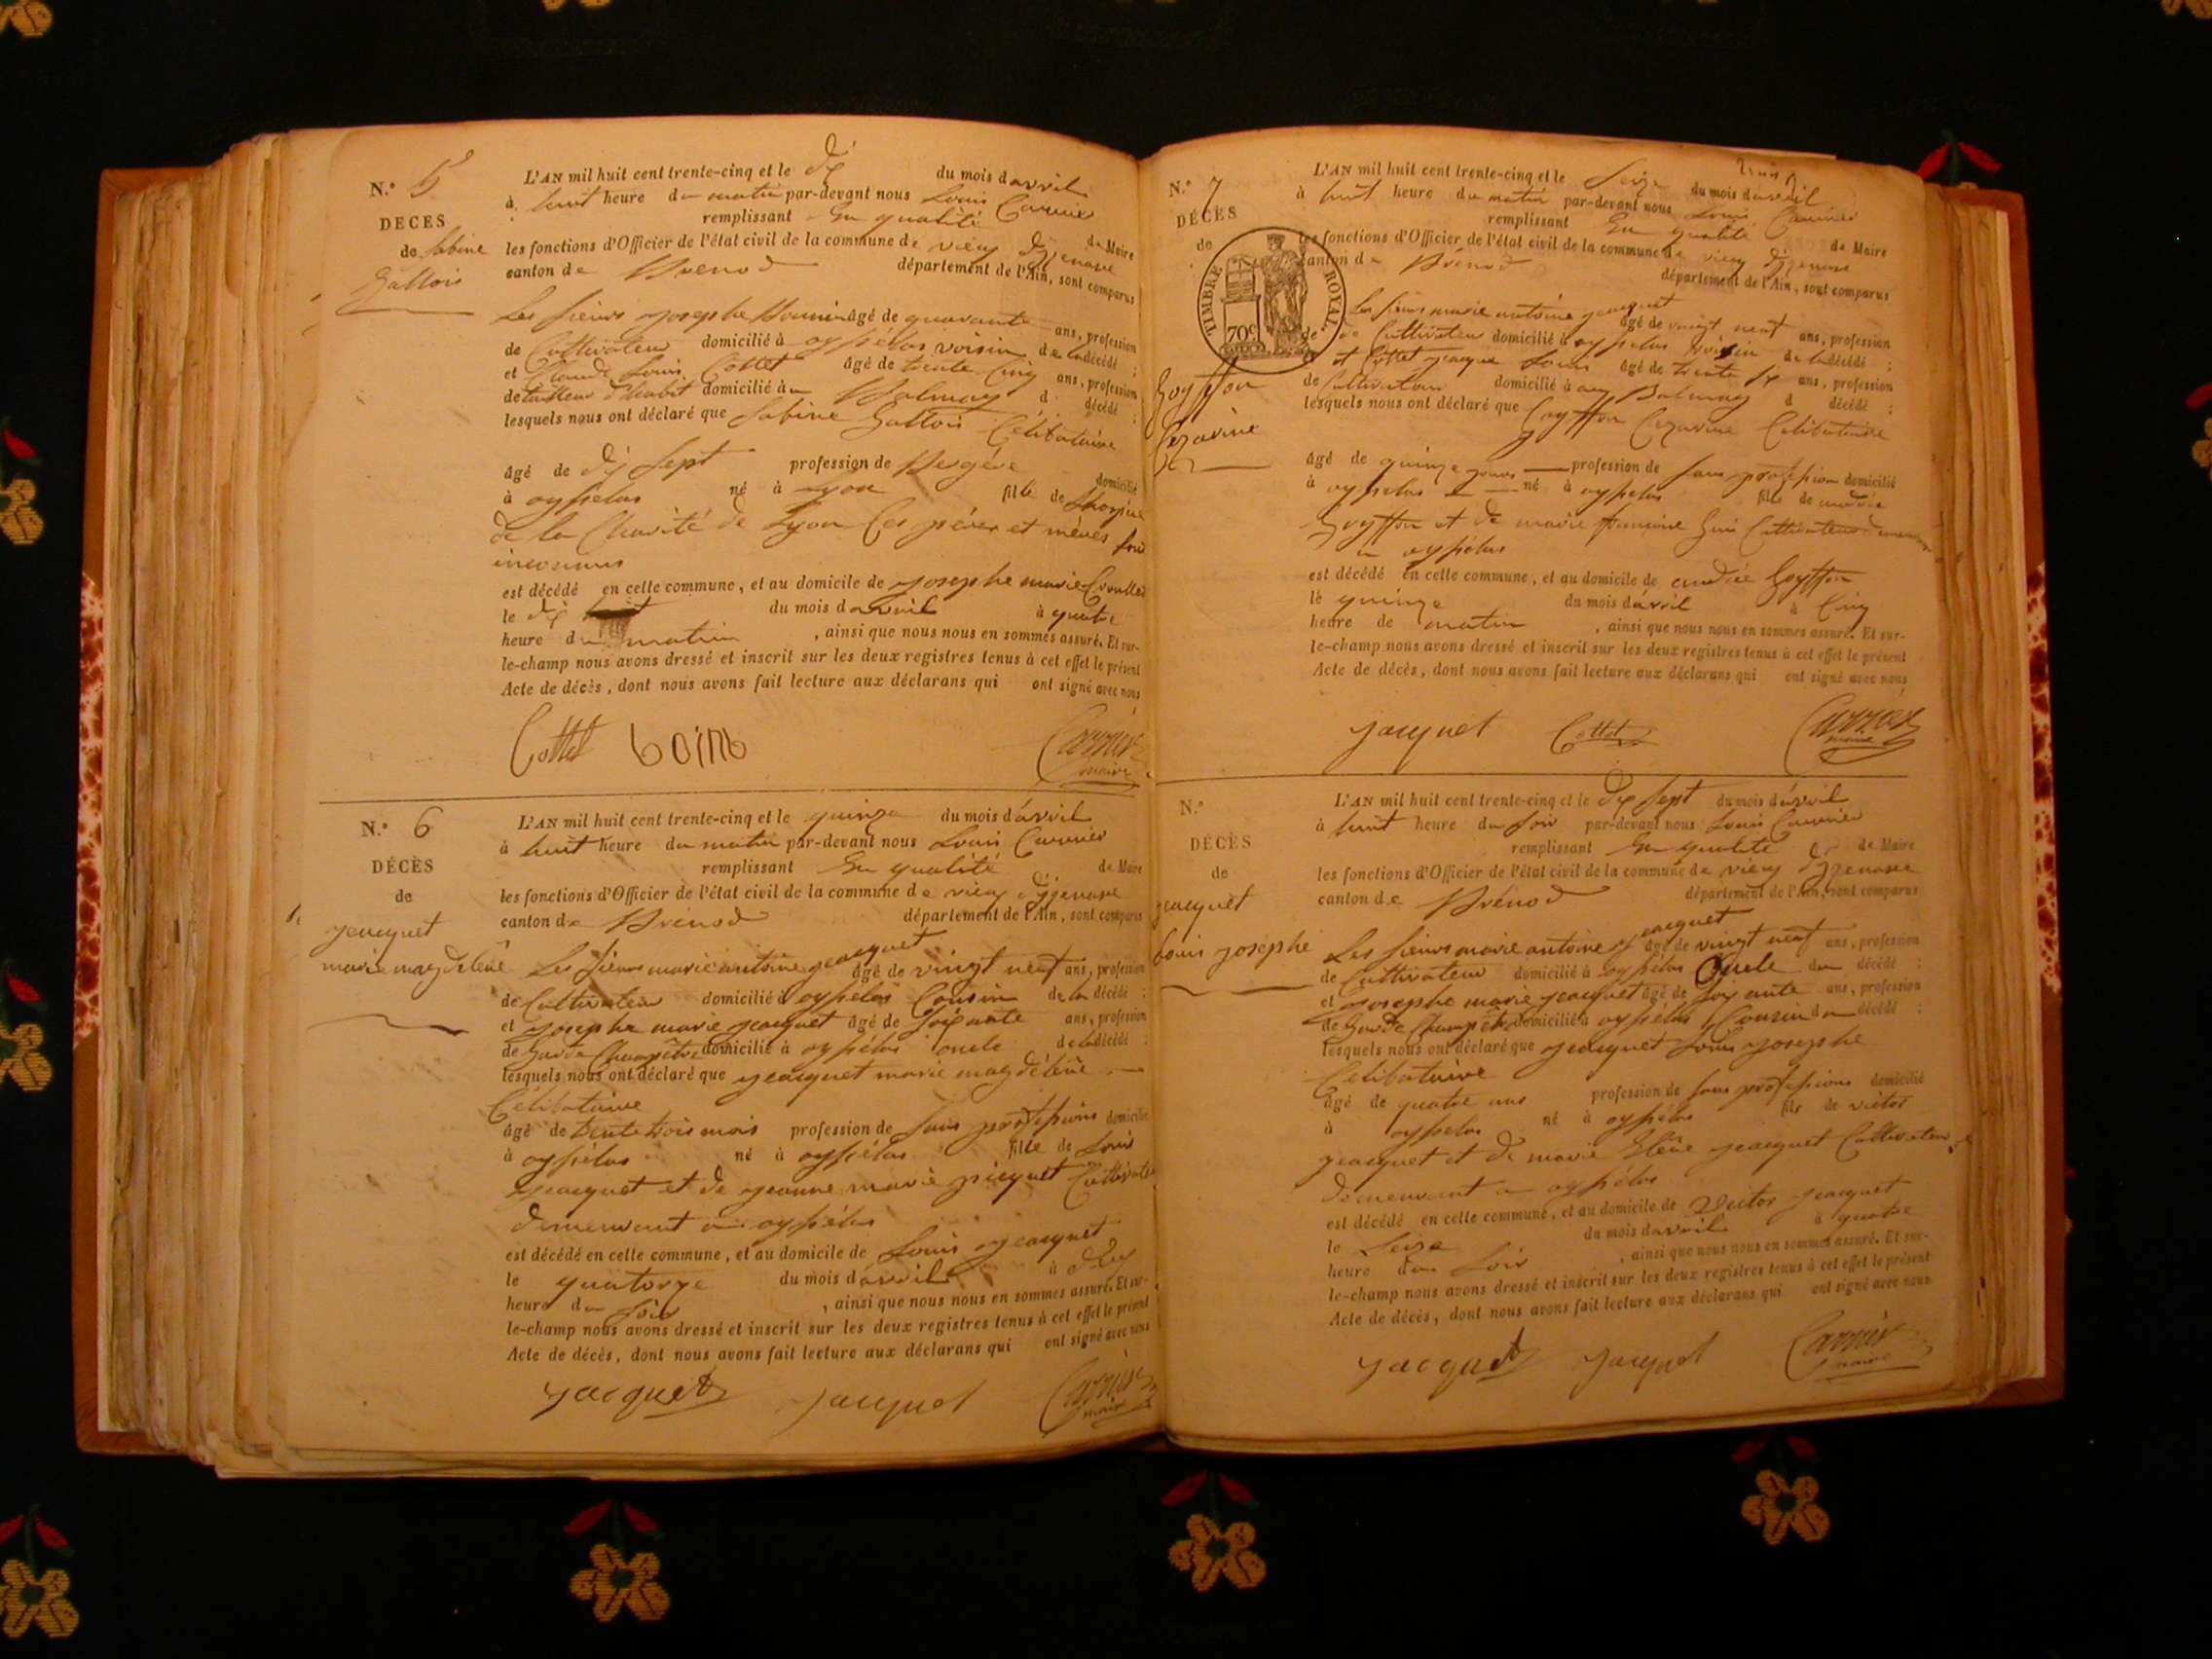 N.° 5
DECES
de Sabine
Gallois
L'AN mil huit cent trente-cinq et le dix du mois d avril
à huit heure du matin par-devant nous Louis Carrier
remplissant En qualité de Maire
les fonctions d'Officier de l'état civil de la commune de vieu d'izenave
canton de Brenod département de l'Ain, sont comparus
Les sieurs Josephe âgé de quarante ans, profession
de Cultivateur domicilié à oysselas voisin de la décédé ;
et Claude Louis Cottet âgé de trente cinq ans, profession
de tailleur d'habit domicilié à Balmay d décédé ;
lesquels nous ont déclaré que Sabine Gallois Célibataire
âgé de dix sept profession de Bergère domicilié
à oysselas né à Lyon fille de Lhospice
de la Charité de Lyon Ces pérer et mères
inconnus
est décédé en cette commune, et au domicile de Josephe marie
le dix du mois d avril à quatre
heure du matin , ainsi que nous nous en sommes assuré. Et sur-
le-champ nous avons dressé et inscrit sur les deux registres tenus à cet effet le présent
Acte de décès, dont nous avons fait lecture aux déclarans qui ont signé avec nous
Cottet Carrier
maire
N.° 6
DÉCÈS
de
jeacquet
marie magdelêne
L'AN mil huit cent trente-cinq et le quinze du mois d'avril
à huit heure du matin par-devant nous Louis Carrier
remplissant En qualité de Maire
les fonctions d'Officier de l'état civil de la commune de vieu d'izenave
canton de Brenod département de l'Ain, sont comparus
Les sieurs marie antoine jeacquet âgé de vingt neuf ans, profession
de Cultivateur domicilié à oysselas Cousin de la décédé ;
et Josephe marie jeacquet âgé de soixante ans, profession
de Garde Champêtre domicilié à oysselas oncle de la décédé ;
lesquels nous ont déclaré que jeacquet marie magdélêne
Célibataire
âgé de trente trois mois profession de sans professions domicilié
à oysselas né à oysselas fille de Louis
jeacquet et de jeanne marie
demeurant a oysselas
est décédé en cette commune, et au domicile de Louis jeacquet
le quatorze du mois d'avril à dix
heure du soir , ainsi que nous nous en sommes assuré. Et sur-
le-champ nous avons dressé et inscrit sur les deux registres tenus à cet effet le présent
Acte de décès, dont nous avons fait lecture aux déclarans qui ont signé avec nous
Jacquet Jacquet Carrier
maire
N.° 7
DÉCÈS
de
Goyffon
Cezarine
TIMBRE ROYAL
70c
L'AN mil huit cent trente-cinq et le Seize du mois d avril
à huit heure du matin par-devant nous Louis Carrier
remplissant En qualité de Maire
les fonctions d'Officier de l'état civil de la commune de vieu d'izenave
canton de Brenod département de l'Ain, sont comparus
Les sieurs marie antoine jeacquet âgé de vingt neuf ans, profession
de Cultivateur domicilié à oysselas voisin de la décédé ;
et Cottet jacque Louis âgé de trente six ans, profession
de Cultivateur domicilié à Balmay d décédé ;
lesquels nous ont déclaré que Goyffon Cezarine Célibataire
âgé de quinze jours profession de sans profession domicilié
à oysselas né à oysselas fille de andrée
Goyffon et de marie francoise Cultivateur
a oysselas
est décédé en cette commune, et au domicile de andrée Goyffon
le quinze du mois d'avril à Cinq
heure de matin , ainsi que nous nous en sommes assuré. Et sur-
le-champ nous avons dressé et inscrit sur les deux registres tenus à cet effet le présent
Acte de décès, dont nous avons fait lecture aux déclarans qui ont signé avec nous
Jacquet Cottet Carrier
maire
N.°
DÉCÈS
de
jeacquet
Louis josephe
L'AN mil huit cent trente-cinq et le dix sept du mois d'avril
à huit heure du soir par-devant nous Louis Carrier
remplissant En qualité de Maire
les fonctions d'Officier de l'état civil de la commune de vieu d'izenave
canton de Brénod département de l'Ain, sont comparus
Les sieurs marie antoine jeacquet âgé de vingt neuf ans, profession
de Cultivateur domicilié à oysselas Oncle du décédé ;
et Josephe marie jeacquet âgé de soixante ans, profession
de Garde Champêtre domicilié à oysselas Cousin du décédé ;
lesquels nous ont déclaré que jeacquet Louis Josephe
Célibataire
âgé de quatre ans profession de sans professions domicilié
à oysselas né à oysselas fils de victor
jeacquet et de marie Elêne jeacquet Cultivateur
demeurant a oysselas
est décédé en cette commune, et au domicile de Victor jeacquet
le Seize du mois d avril à quatre
heure du soir , ainsi que nous nous en sommes assuré. Et sur-
le-champ nous avons dressé et inscrit sur les deux registres tenus à cet effet le présent
Acte de décès, dont nous avons fait lecture aux déclarans qui ont signé avec nous
Jacquet Jacquet Carrier
maire